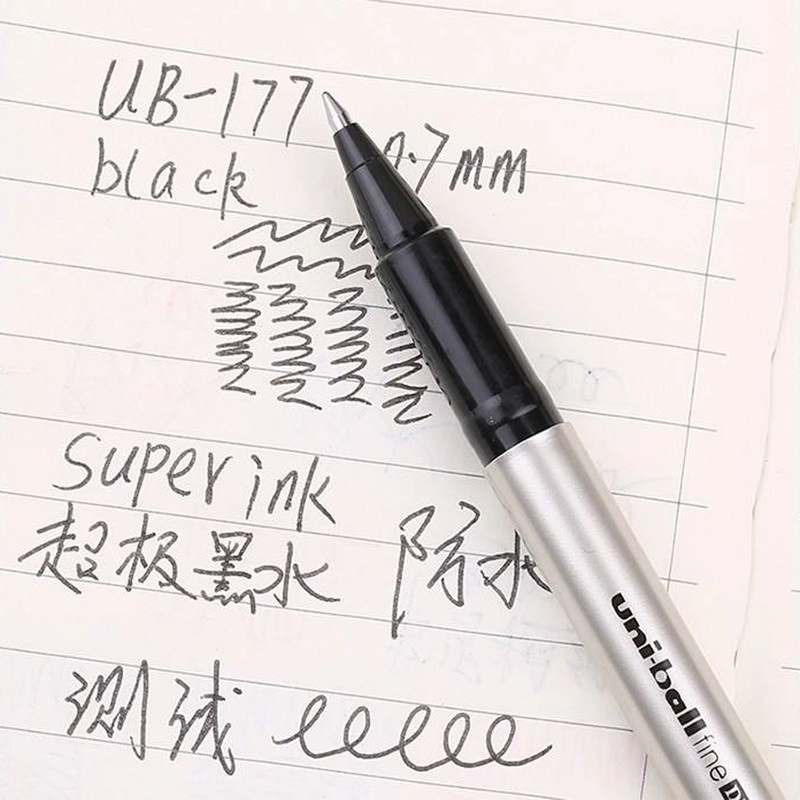 UB-177
black 0.7mm
super ink
超极墨水 防水
测试
uni-ball fine